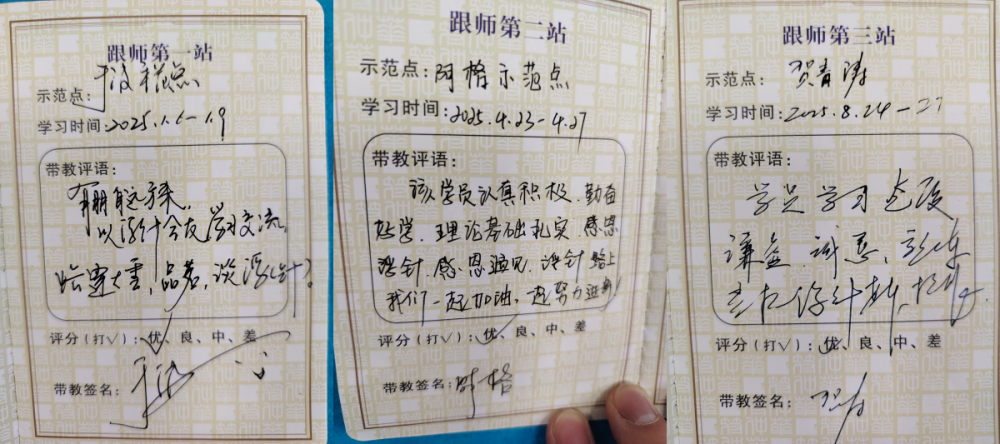 跟师第一站
示范点:于波示范点
学习时间:2025.1.6-1.9
带教评语:
有朋自远方来,
以浮针会友学习交流,
品茗,谈浮针?
评分(打√):优、良、中、差
带教签名:
跟师第二站
示范点:阿格示范点
学习时间:2025.4.23-4.27
带教评语:
该学员认真积极.勤奋
好学.理论基础扎实.感恩
浮针.感恩遇见.浮针路上
我们一起加油,一起努力进步!
评分(打√):优、良、中、差
带教签名:阿格
跟师第三站
示范点:贺青涛
学习时间:2025.8.24-27
带教评语:
学员学习态度
谦逊 诚恳,
评分(打√):优、良、中、差
带教签名: